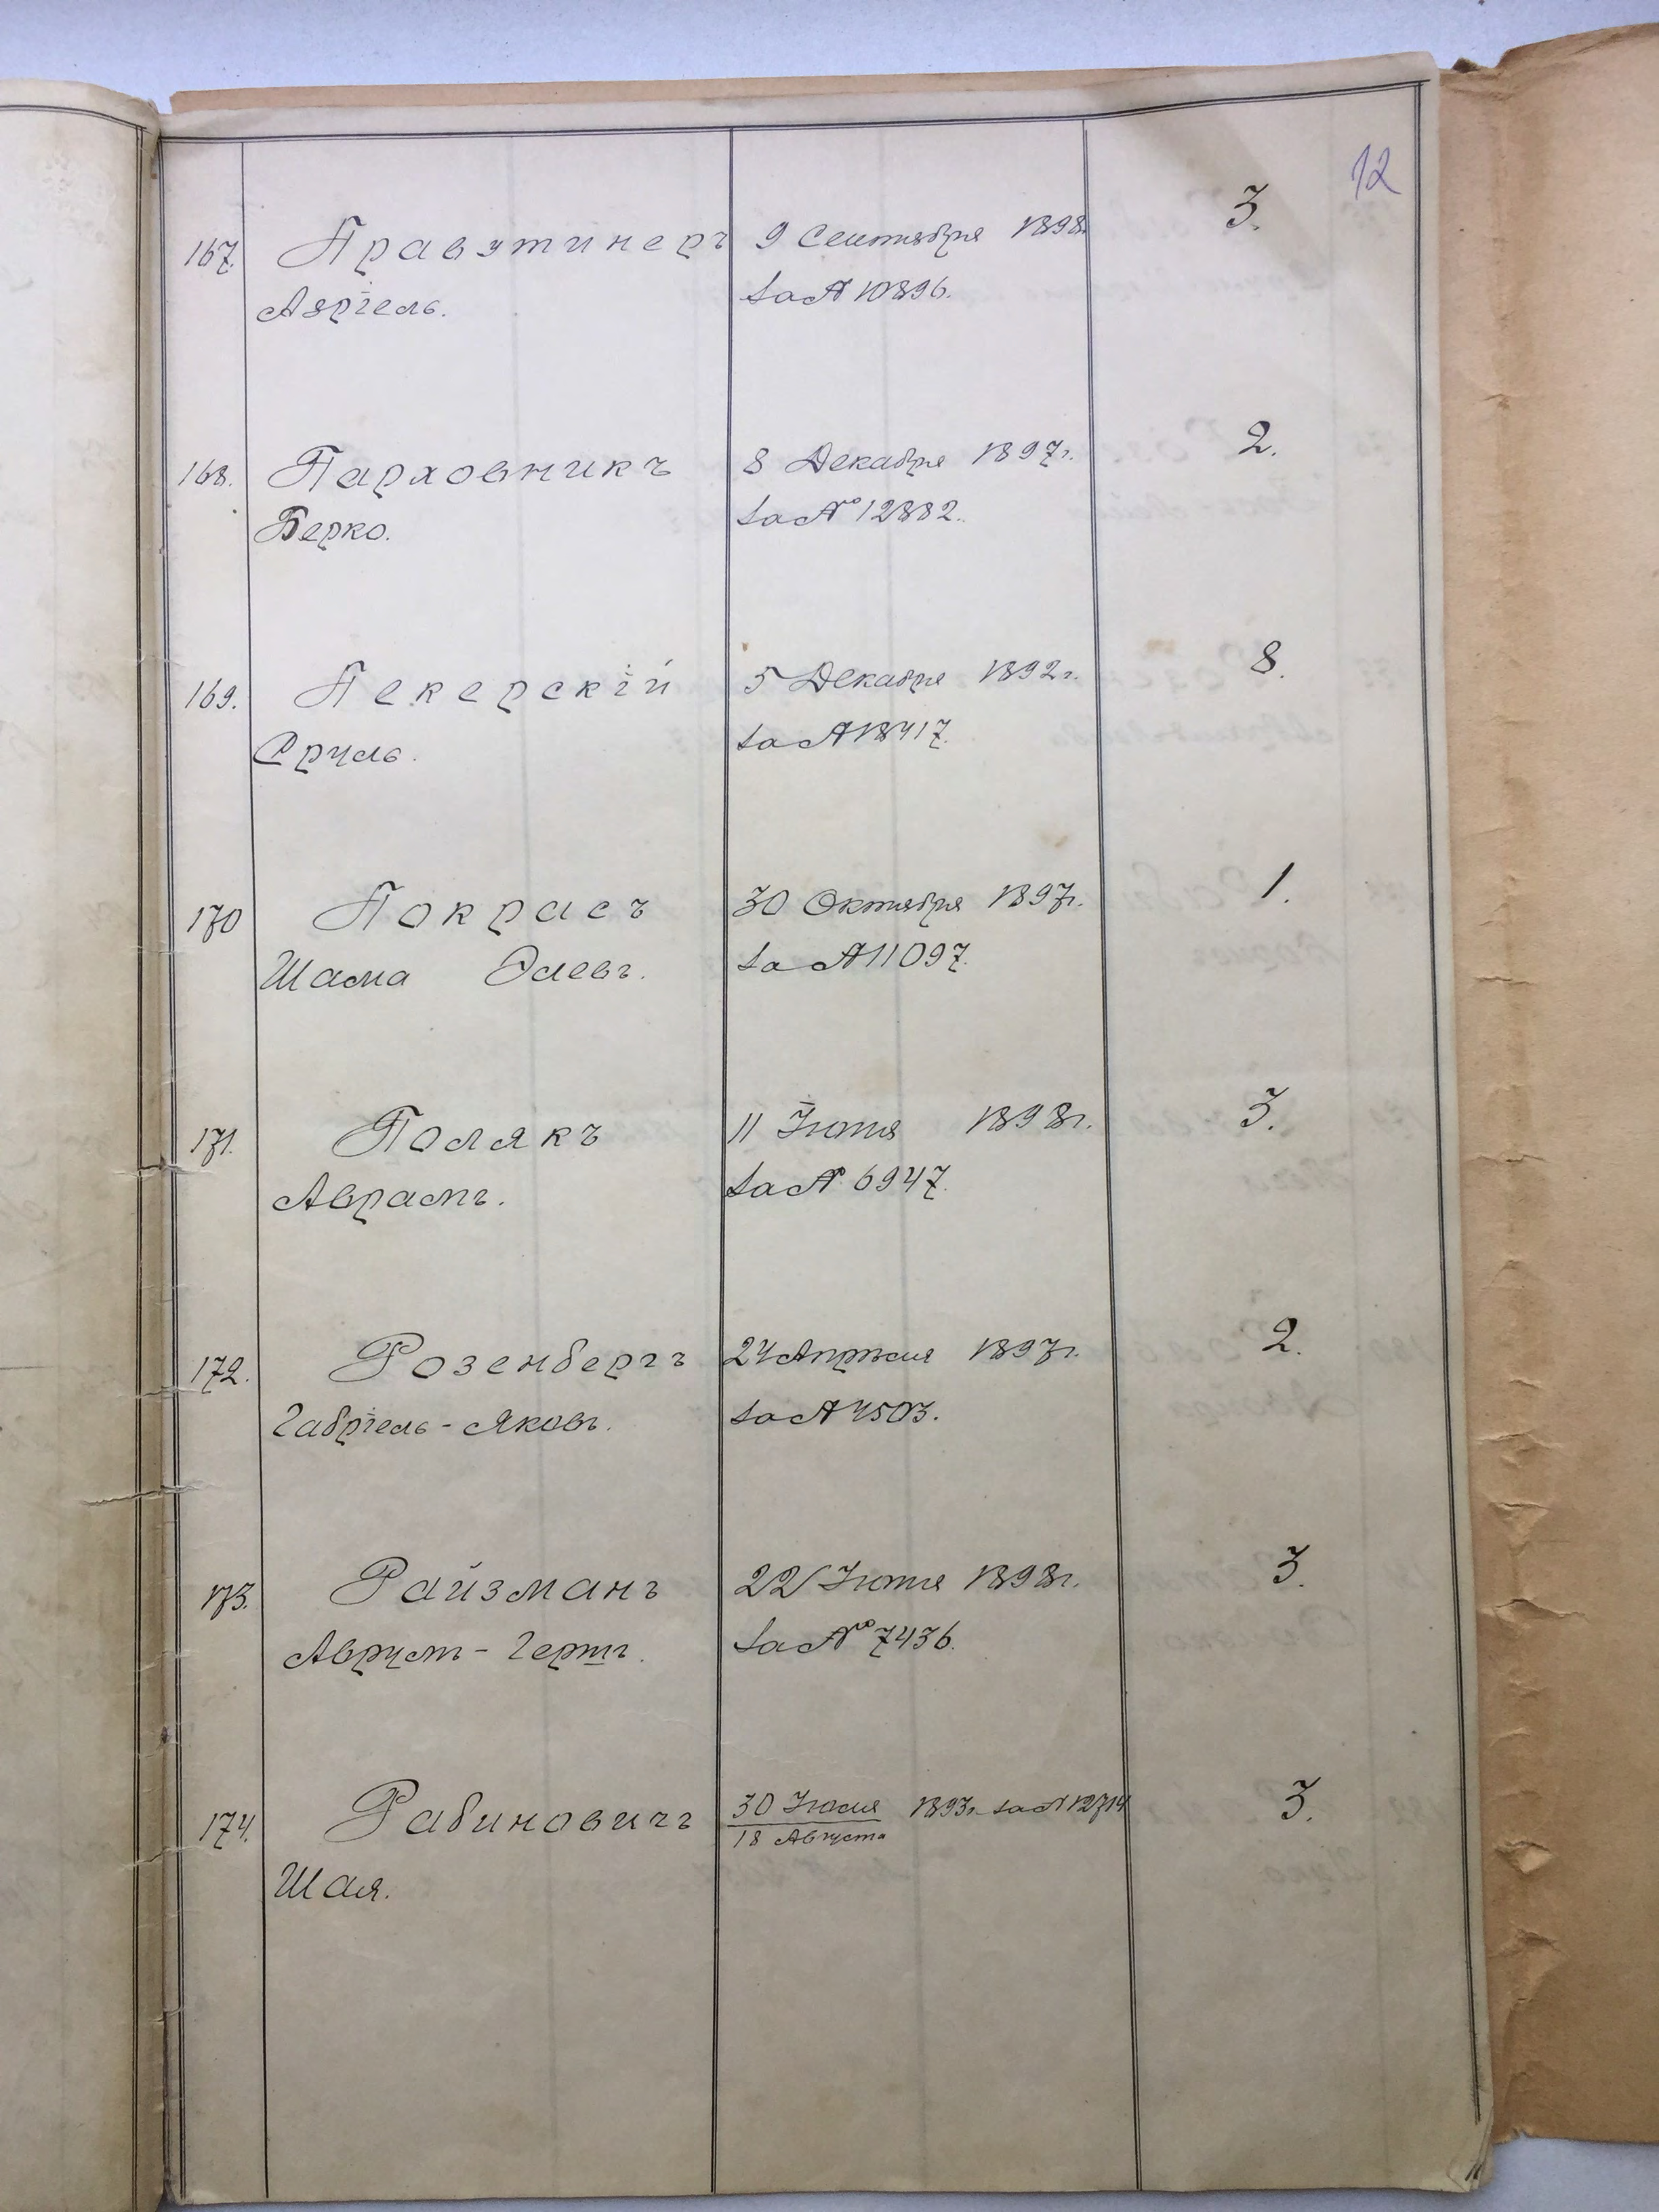 12
167. Правутинеръ 9 Сентября 1898г. 3.
Азріель. за № 10896.
168. Парховникъ 8 Декабря 1897г. 2.
Берко. за № 12882.
169. Пекерскій 5 Декабря 1892г. 8.
Сруль. за № 18417.
170 Покрасъ 30 Октября 1897г. 1.
Шама Элевъ. за № 11097.
171. Полякъ 11 Іюня 1898г. 3.
Аврамъ. за № 6947.
172. Розенбергъ 24 Апрѣля 1897г. 2.
Габріель-Яковъ. за № 4503.
173. Райзманъ 22 Іюня 1898г. 3.
Аврумъ-Гершъ. за № 7436.
174. Рабиновичъ 30 Іюля 1893г. за № 12714 3.
18 Августа
Шая.